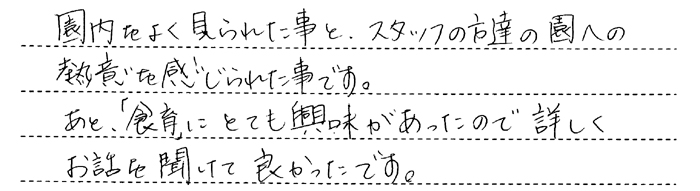 園内をよく見られた事と、スタッフの方達の園への
熱意を感じられた事です。
あと、「食育」にとても興味があったので詳しく
お話を聞けて良かったです。